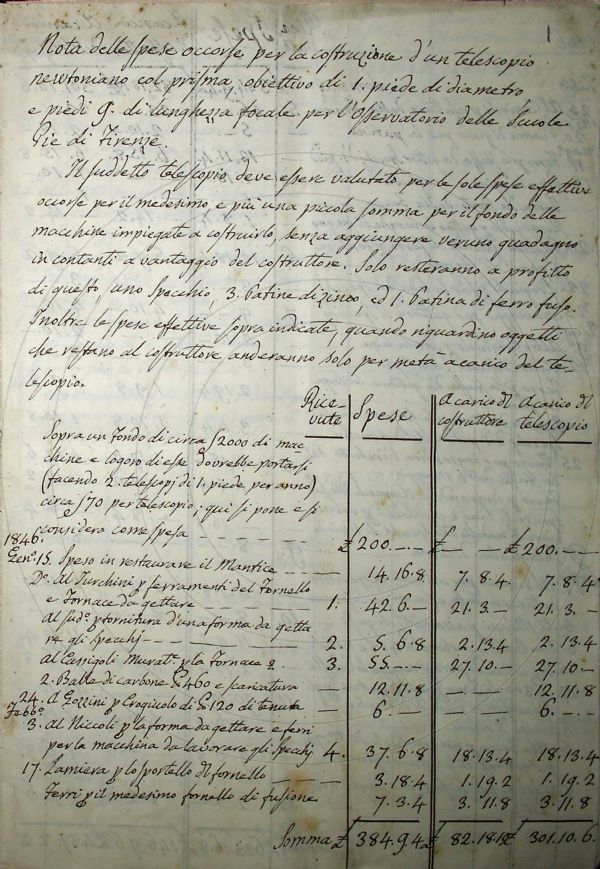 1
Nota delle spese occorse per la costruzione d'un telescopio
newtoniano col prisma, obiettivo di 1. piede di diametro
e piedi 9. di lunghezza focale per l'Osservatorio delle Scuole
Pie di Firenze.
Il suddetto telescopio deve essere valutato per le sole spese effettive
occorse per il medesimo, e più una piccola somma per il fondo delle
macchine impiegate a costruirlo, senza aggiungere veruno guadagno
in contanti a vantaggio del costruttore. Solo resteranno a profitto
di questo, uno specchio, 3. Patine di zinco, ed 1. Patina di ferro fuso.
Inoltre le spese effettive sopra indicate, quando riguardino oggetti
che restano al costruttore anderanno solo per metà a carico del te-
lescopio.
Rice-
vute Spese A carico dl costruttore A carico dl telescopio
Sopra un fondo di circa 2000 di mac-
chine e logoro di esse dovrebbe portarsi
(facendo 2. telescopj di 1. piede per anno)
circa 70 per telescopio; qui si pone e si
considera come spesa £ 200.-.- £ -.- £ 200.-.-
1846.
Genº. 15. Speso in restaurare il Mantice 14.16.8 7.8.4. 7.8.4
Dº. Al Turchini p ferramenti del Fornello
e Fornace da gettare 1. 42.6.- 21.3.- 21.3.-
Al sudº. p fornitura d'una forma da getta
re gli specchj 2. 5.6.8 2.13.4 2.13.4
Al Cassigoli Murat.e p la Fornace 3. 55.-.- 27.10.- 27.10.-
2. Balle di carbone 460 e scaricatura 12.11.8 -.- 12.11.8
24. A Gozzini p Crogiuolo di 120 di tenuta 6.- -.- 6.-
Febbº.
3. Al Niccoli p la forma da gettare e ferri
per la macchina da lavorare gli specchj 4. 37.6.8 18.13.4 18.13.4
17. Lamiera p lo sportello dl fornello 3.18.4 1.19.2 1.19.2
Ferri p il medesimo fornello di fusione 7.3.4 3.11.8 3.11.8
Somma £ 384.9.4 £ 82.18.10 £ 301.10.6.